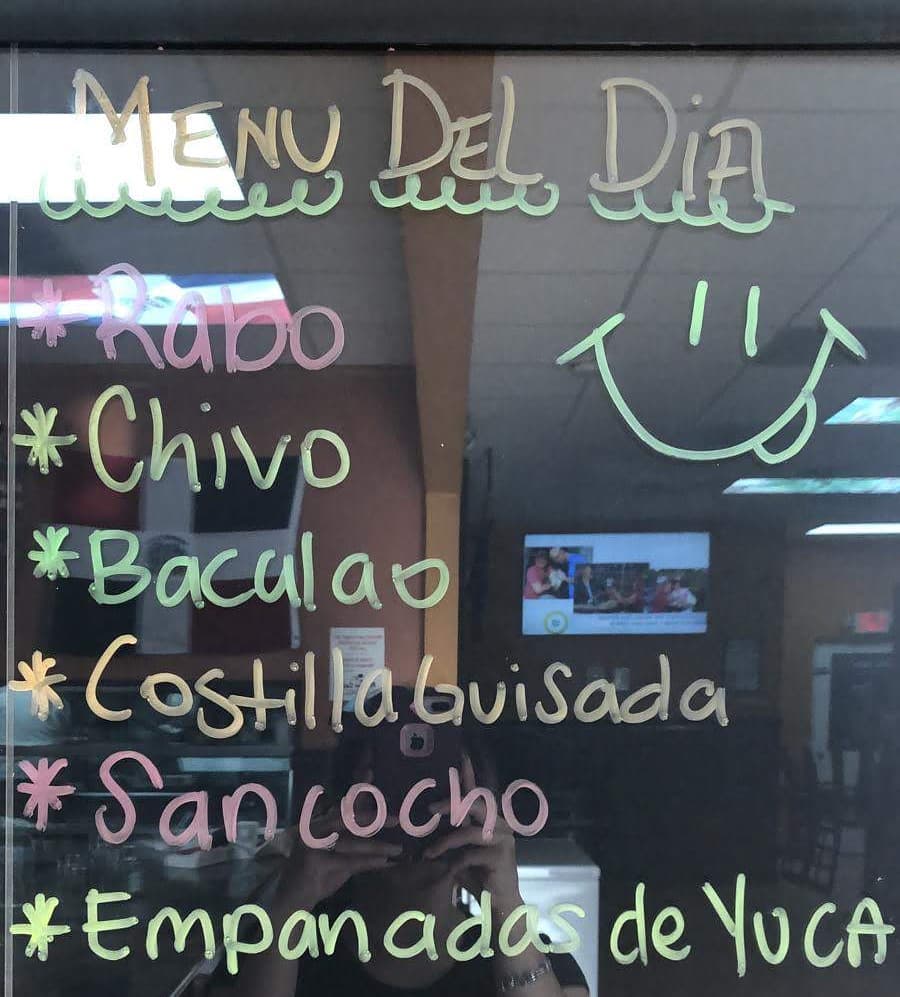 MENU DEL DiA
*Rabo
*Chivo
*Baculao
*Costilla Guisada
*Sancocho
*Empanadas de YUCA